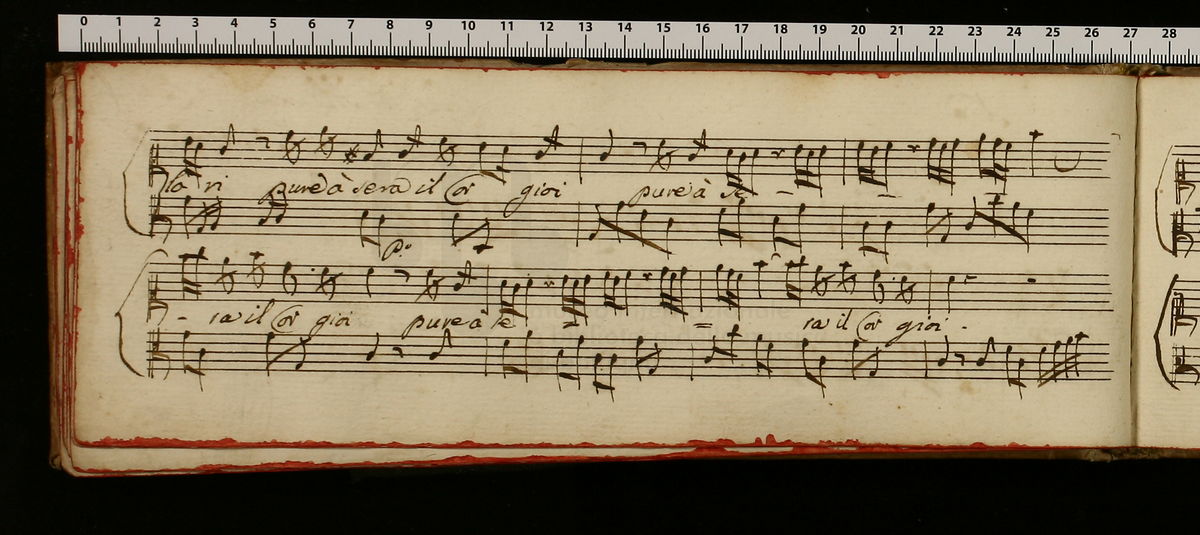 0 1 2 3 4 5 6 7 8 9 10 11 12 13 14 15 16 17 18 19 20 21 22 23 24 25 26 27 28
la ri pure à sera il Cor gioi pure à se
p:
ra il Cor gioi pure à se = = ra il Cor gioi -